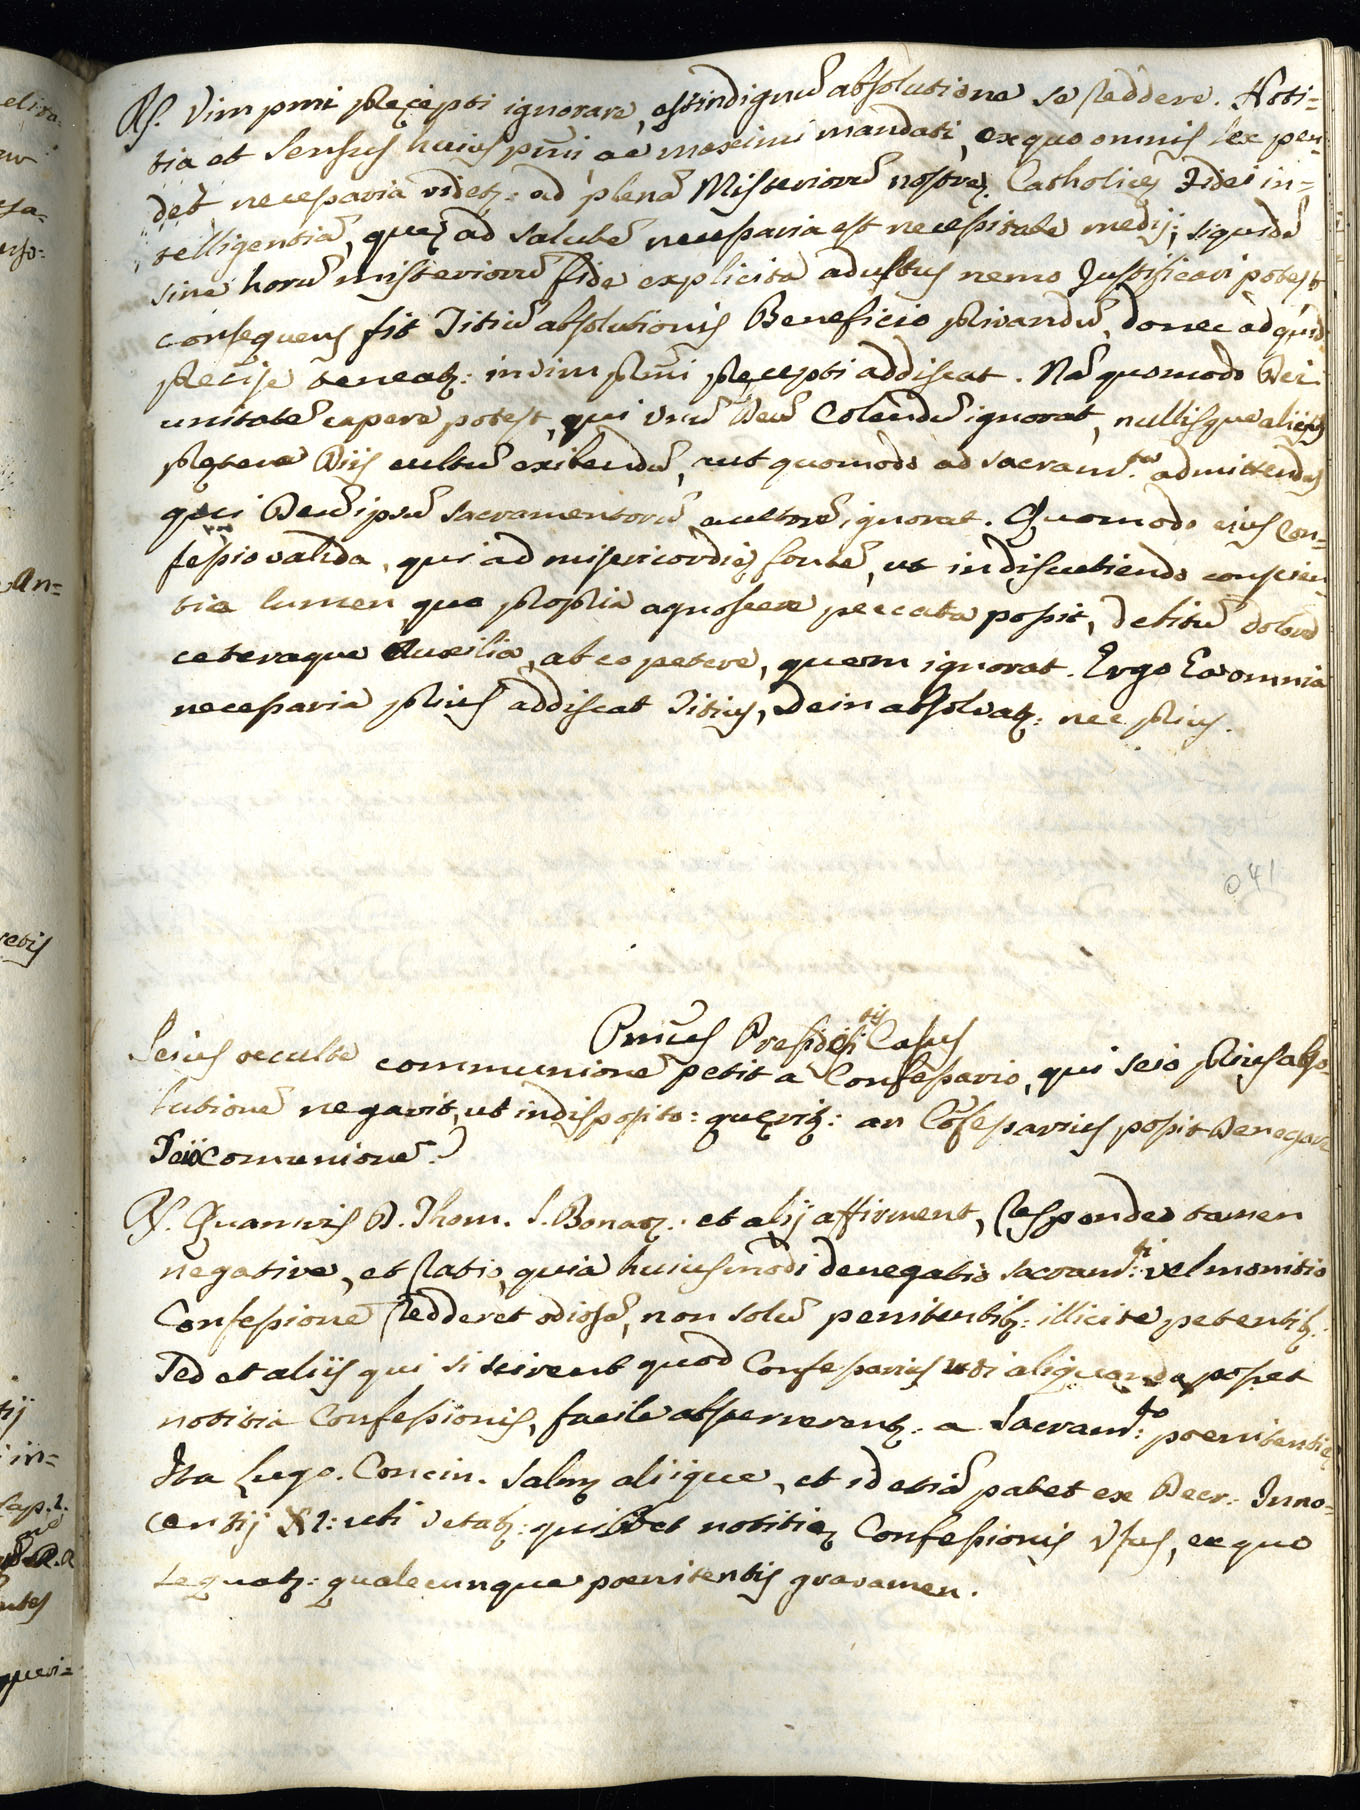 R. Vim pmi præcepti ignorare, est indignũ absolutione se reddere. Noti=
tia et sensus huius pm̃i ac maximi mandati, ex quo omnis lex pen=
det necessaria videtq: ad plenã Misteriorũ nostræ Catholicæ Fidei in=
telligentiã, quæ ad salutẽ necessaria est necessitate medij; siquidẽ
sine horũ misteriorũ fide explicita adultus nemo Justificari potest
consequens fit Titiũ absolutionis Beneficio privandũ, donec ad quid
præcise teneatq: in vim prm̃i præcepti addiscat. Nã quomodo Dei
unitatẽ capere potest, qui unũ Deũ Colendũ ignorat, nullisque aliis
præterea Diis cultũ exibendũ, aut quomodo ad sacram.ta admittendus
qui Deũ ipsũ sacramentorũ auctorẽ ignorat. Quomodo eius Con=
fessio valida, qui ad misericordiæ fontẽ, ut in discutiendo conscien=
tia lumen, quo propria agnoscere peccata possit, debitũ dolorẽ
ceteraque Auxilia, ab eo petere, quem ignorat. Ergo Ea omnia
necessaria prius addiscat Titius, Dein absolvatq: nec prius.
041
Pmũs Presidetis Casus
Seius occulte communionẽ petit a Confessario, qui seio prius abso=
lutionẽ negavit, ut indisposito: quæritq: an Cõfessarius possit Denegare
Seio comunionẽ?
R. Quamvis D. Thom. S. Bonavq: et alij affirment, respondeo tamen
negative, et ratio, quia huiusmodi denegatio sacram:ti vel monitio
Confessionẽ redderet odiosã, non solũ penitentibq: illicite petentibq:
Sed et aliis qui si scirent quod Confessarius uti aliquando posset
notitia Confessionis, facile absterrerentq: a Sacram:to poenitentiæ
Ita Lugo. Concin. Salm, aliique, et id etiã patet ex Decr: Inno=
centij XI: ubi vetatq: quilibet notitiæ Confessionis Usus, ex quo
sequatq: qualecunque poenitentis gravamen.